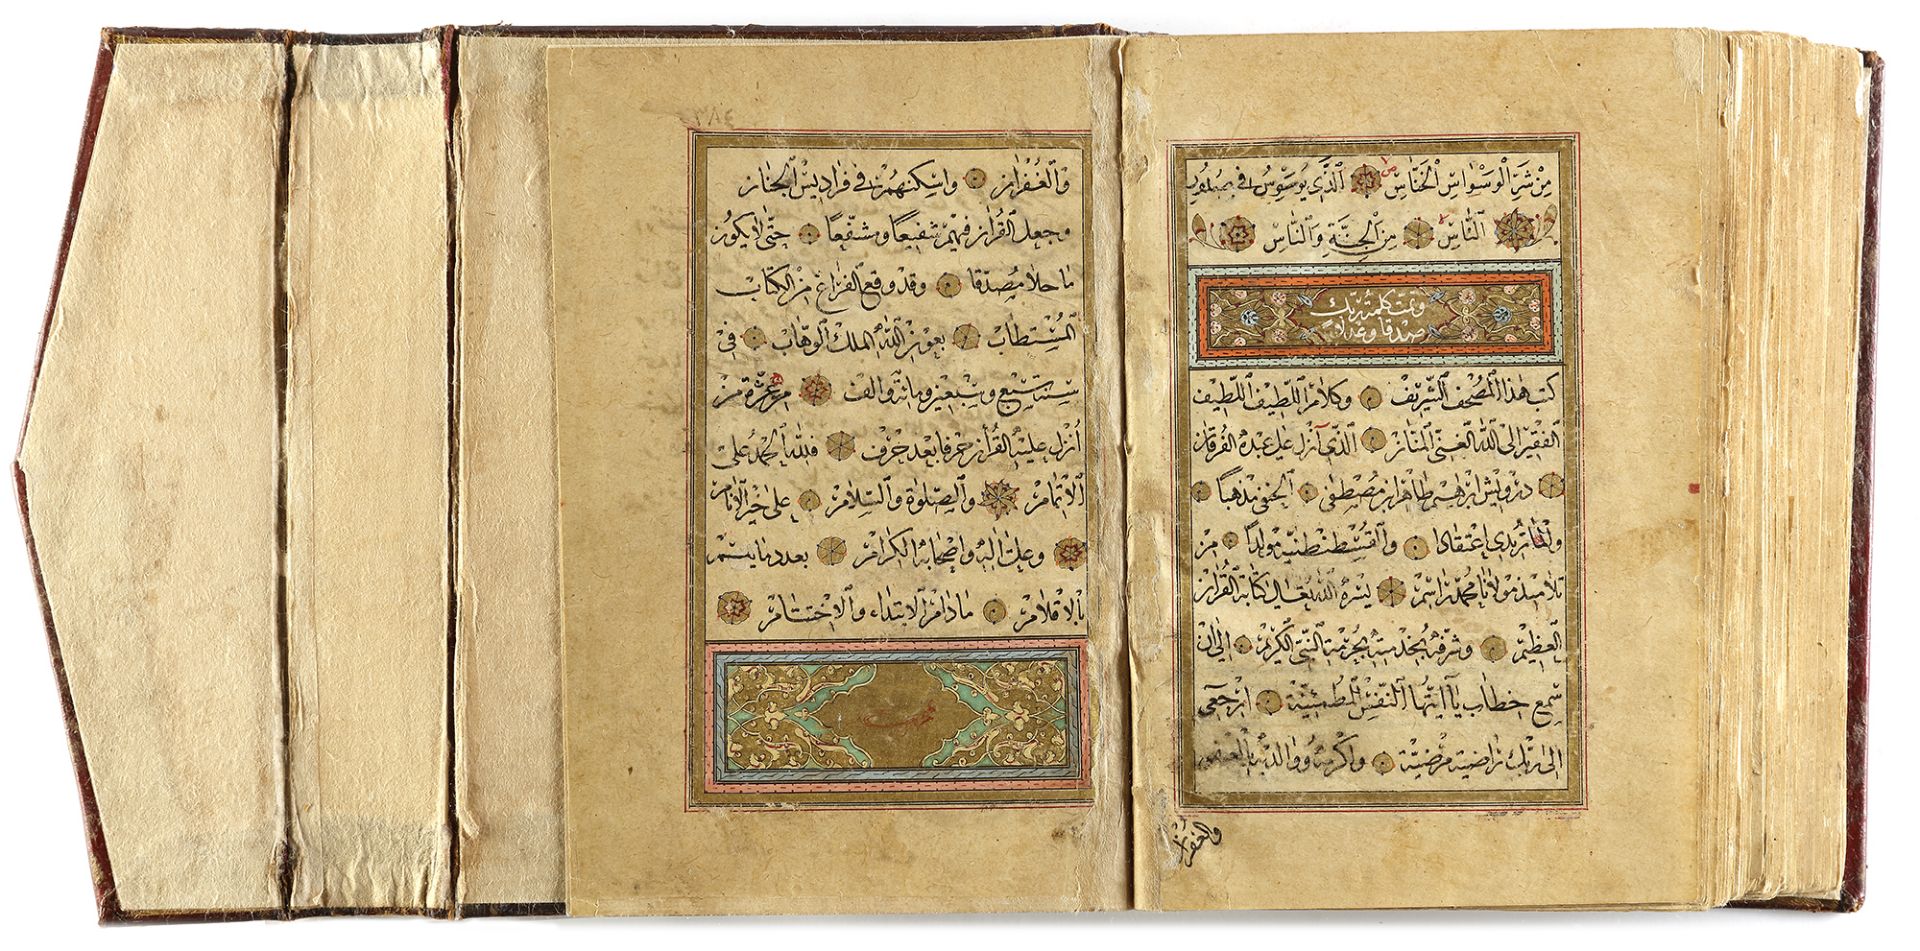 مِنْ شَرِّ الْوَسْوَاسِ الْخَنَّاسِ الَّذِي يُوَسْوِسُ فِي صُدُورِ
النَّاسِ مِنَ الْجِنَّةِ وَالنَّاسِ
وتمت كلمة ربك
صدقا وعدلا
كتب هذا المصحف الشريف وكلام اللطيف اللطيف
الفقير الى الله الغني المنان الذي انزل على عبده الفرقان
درويش ابرهيم طاهر ابن مصطفى الحنفي مذهبا
والماتريدي اعتقادا والقسطنطنية مولدا من
تلاميذ مولانا محمد راسم يسره الله تعالى كتابة القران
العظيم وشرفه بخدمته بحرمة النبي الكريم الى ان
سمع خطاب يا ايتها النفس المطمئنة ارجعي
الى ربك راضية مرضية واكرمه ووالديه بالعفو
والغفران
والغفران واسكنهم في فراديس الجنان
وجعل القران فيهم شفيعا ومشفعا حتى لا يكون
ماحلا مصدقا وقد وقع الفراغ من الكتاب
المستطاب بعون الله الملك الوهاب في
سنة سبع وسبعين ومائة والف من هجرة من
انزل عليه القران حرفا بعد حرف فلله الحمد على
الاتمام والصلوة والسلام على خير الانام
وعلى اله واصحابه الكرام بعدد ما يتم
بالاقلام ما دام الابتداء والاختتام